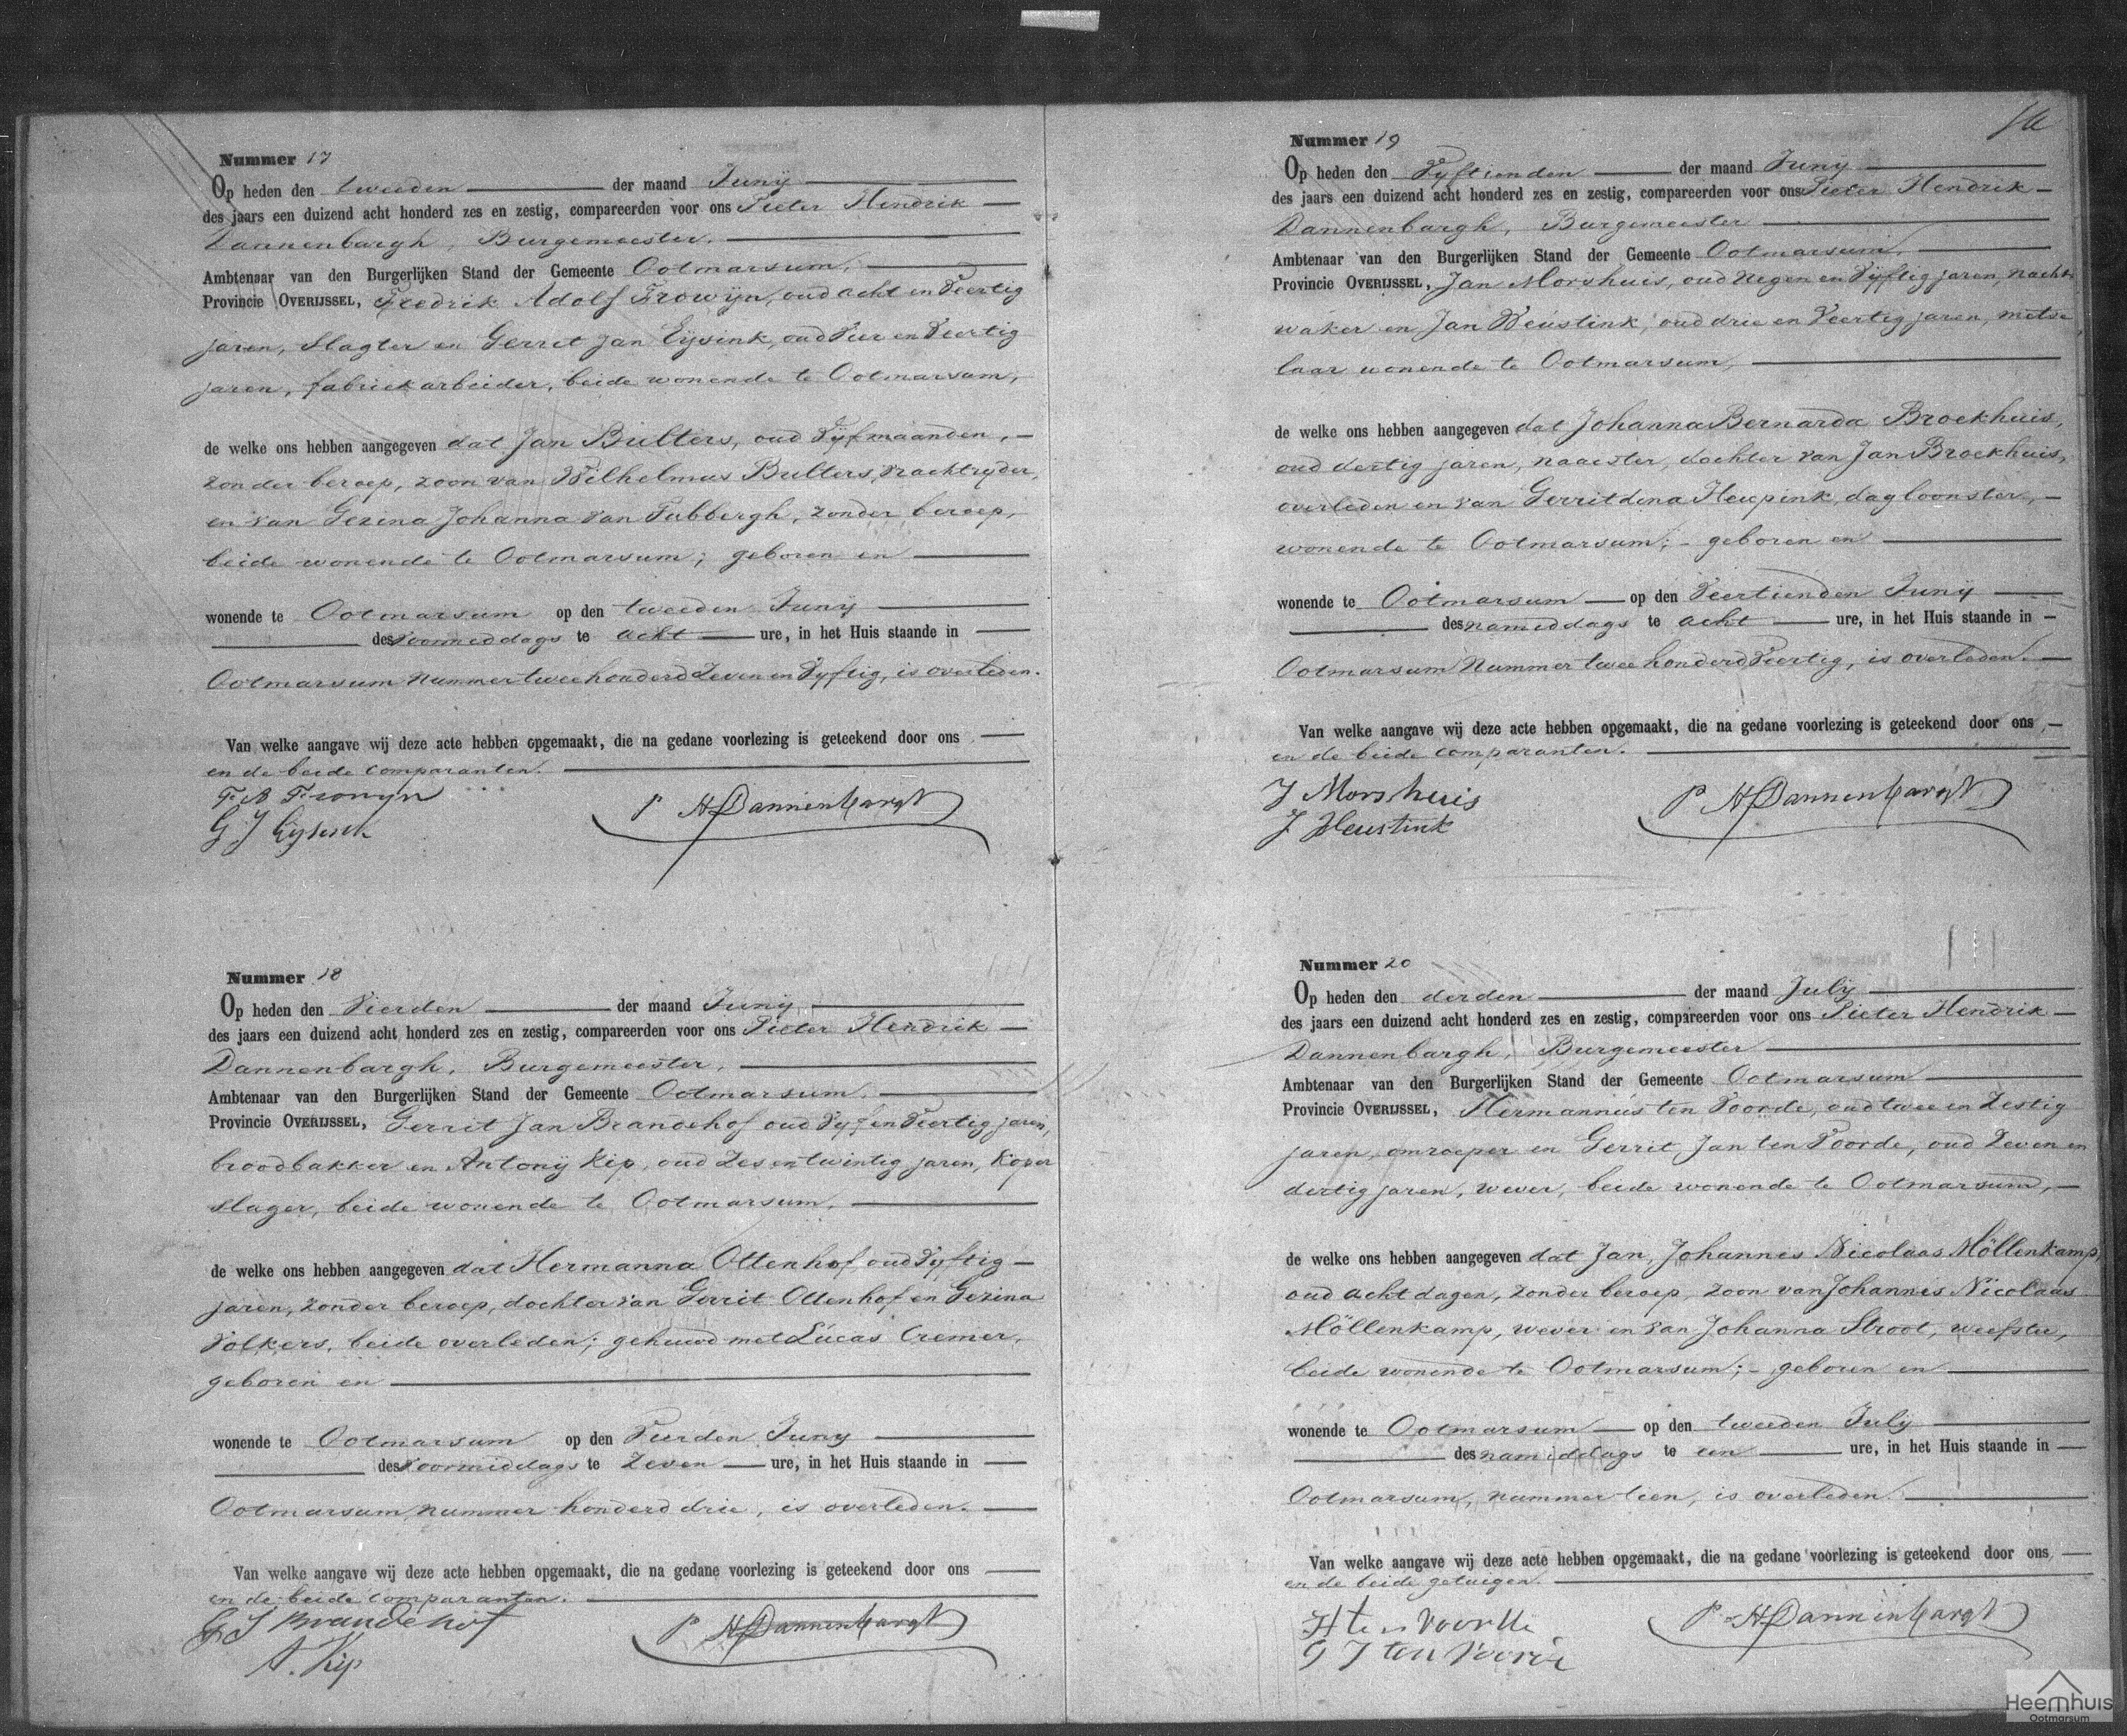 Nummer 17
Op heden den tweeden der maand Junij
des jaars een duizend acht honderd zes en zestig, compareerden voor ons Pieter Hendrik
Dannenbargh, Burgemeester.
Ambtenaar van den Burgerlijken Stand der Gemeente Ootmarsum,
Provincie OVERIJSSEL, Fredrik Adolf Frowijn, oud acht en Veertig
jaren, slagter en Gerrit Jan Eijsink, oud Vier en Veertig
jaren, fabriekarbeider, beide wonende te Ootmarsum,
de welke ons hebben aangegeven dat Jan Bulters, oud Vijf maanden,
zonder beroep, zoon van Wilhelmus Bulters, Vrachtrijder,
en van Gezina Johanna van Tubbergh, zonder beroep,
beide wonende te Ootmarsum; geboren en
wonende te Ootmarsum op den tweeden Junij
des Voormiddags te acht ure, in het Huis staande in
Ootmarsum nummer twee honderd Zeven en Vijftig, is overleden.
Van welke aangave wij deze acte hebben opgemaakt, die na gedane voorlezing is geteekend door ons
en de beide comparanten.
F. A Frowijn
P H Dannenbargh
G J Eijsink
Nummer 18
Op heden den Vierden der maand Junij
des jaars een duizend acht honderd zes en zestig, compareerden voor ons Pieter Hendrik
Dannenbargh, Burgemeester,
Ambtenaar van den Burgerlijken Stand der Gemeente Ootmarsum,
Provincie OVERIJSSEL, Gerrit Jan Brandehof oud Vijf en Veertig jaren,
broodbakker en Antonij Kip, oud Zes en twintig jaren, Koper
slager, beide wonende te Ootmarsum,
de welke ons hebben aangegeven dat Hermanna Ottenhof oud Vijftig
jaren, zonder beroep, dochter van Gerrit Ottenhof en Gezina
Volkers, beide overleden; gehuwd met Lucas Cremer,
geboren en
wonende te Ootmarsum op den Vierden Junij
des Voormiddags te Zeven ure, in het Huis staande in
Ootmarsum, nummer honderd drie, is overleden.
Van welke aangave wij deze acte hebben opgemaakt, die na gedane voorlezing is geteekend door ons
en de beide comparanten.
G J Brandehof
P H Dannenbargh
A. Kip
Nummer 19
Op heden den Vijftienden der maand Junij
des jaars een duizend acht honderd zes en zestig, compareerden voor ons Pieter Hendrik
Dannenbargh, Burgemeester
Ambtenaar van den Burgerlijken Stand der Gemeente Ootmarsum,
Provincie OVERIJSSEL, Jan Morshuis, oud Negen en Vijftig jaren, nacht
waker en Jan Heustink, oud drie en Veertig jaren, metse
laar wonende te Ootmarsum,
de welke ons hebben aangegeven dat Johanna Bernarda Broekhuis,
oud dertig jaren, naaister, dochter van Jan Broekhuis,
overleden en van Gerritdina Heupink, dagloonster,
wonende te Ootmarsum; geboren en
wonende te Ootmarsum op den Veertienden Junij
des namiddags te acht ure, in het Huis staande in
Ootmarsum Nummer twee honderd Veertig, is overleden.
Van welke aangave wij deze acte hebben opgemaakt, die na gedane voorlezing is geteekend door ons
en de beide comparanten.
J Morshuis
P H Dannenbargh
J Heustink
Nummer 20
Op heden den derden der maand Julij
des jaars een duizend acht honderd zes en zestig, compareerden voor ons Pieter Hendrik
Dannenbargh, Burgemeester
Ambtenaar van den Burgerlijken Stand der Gemeente Ootmarsum
Provincie OVERIJSSEL, Hermannus ten Voorde, oud twee en Zestig
jaren, omroeper en Gerrit Jan ten Voorde, oud Zeven en
dertig jaren, wever, beide wonende te Ootmarsum,
de welke ons hebben aangegeven dat Jan, Johannes Nicolaas Möllenkamp,
oud acht dagen, zonder beroep, zoon van Johannes Nicolaas
Möllenkamp, wever en van Johanna Stroot, weefster,
beide wonende te Ootmarsum; geboren en
wonende te Ootmarsum op den tweeden Julij
des namiddags te een ure, in het Huis staande in
Ootmarsum, nummer tien, is overleden.
Van welke aangave wij deze acte hebben opgemaakt, die na gedane voorlezing is geteekend door ons
en de beide getuigen.
H ten Voorde
P H Dannenbargh
G J ten Voorde
Heemhuis
Ootmarsum